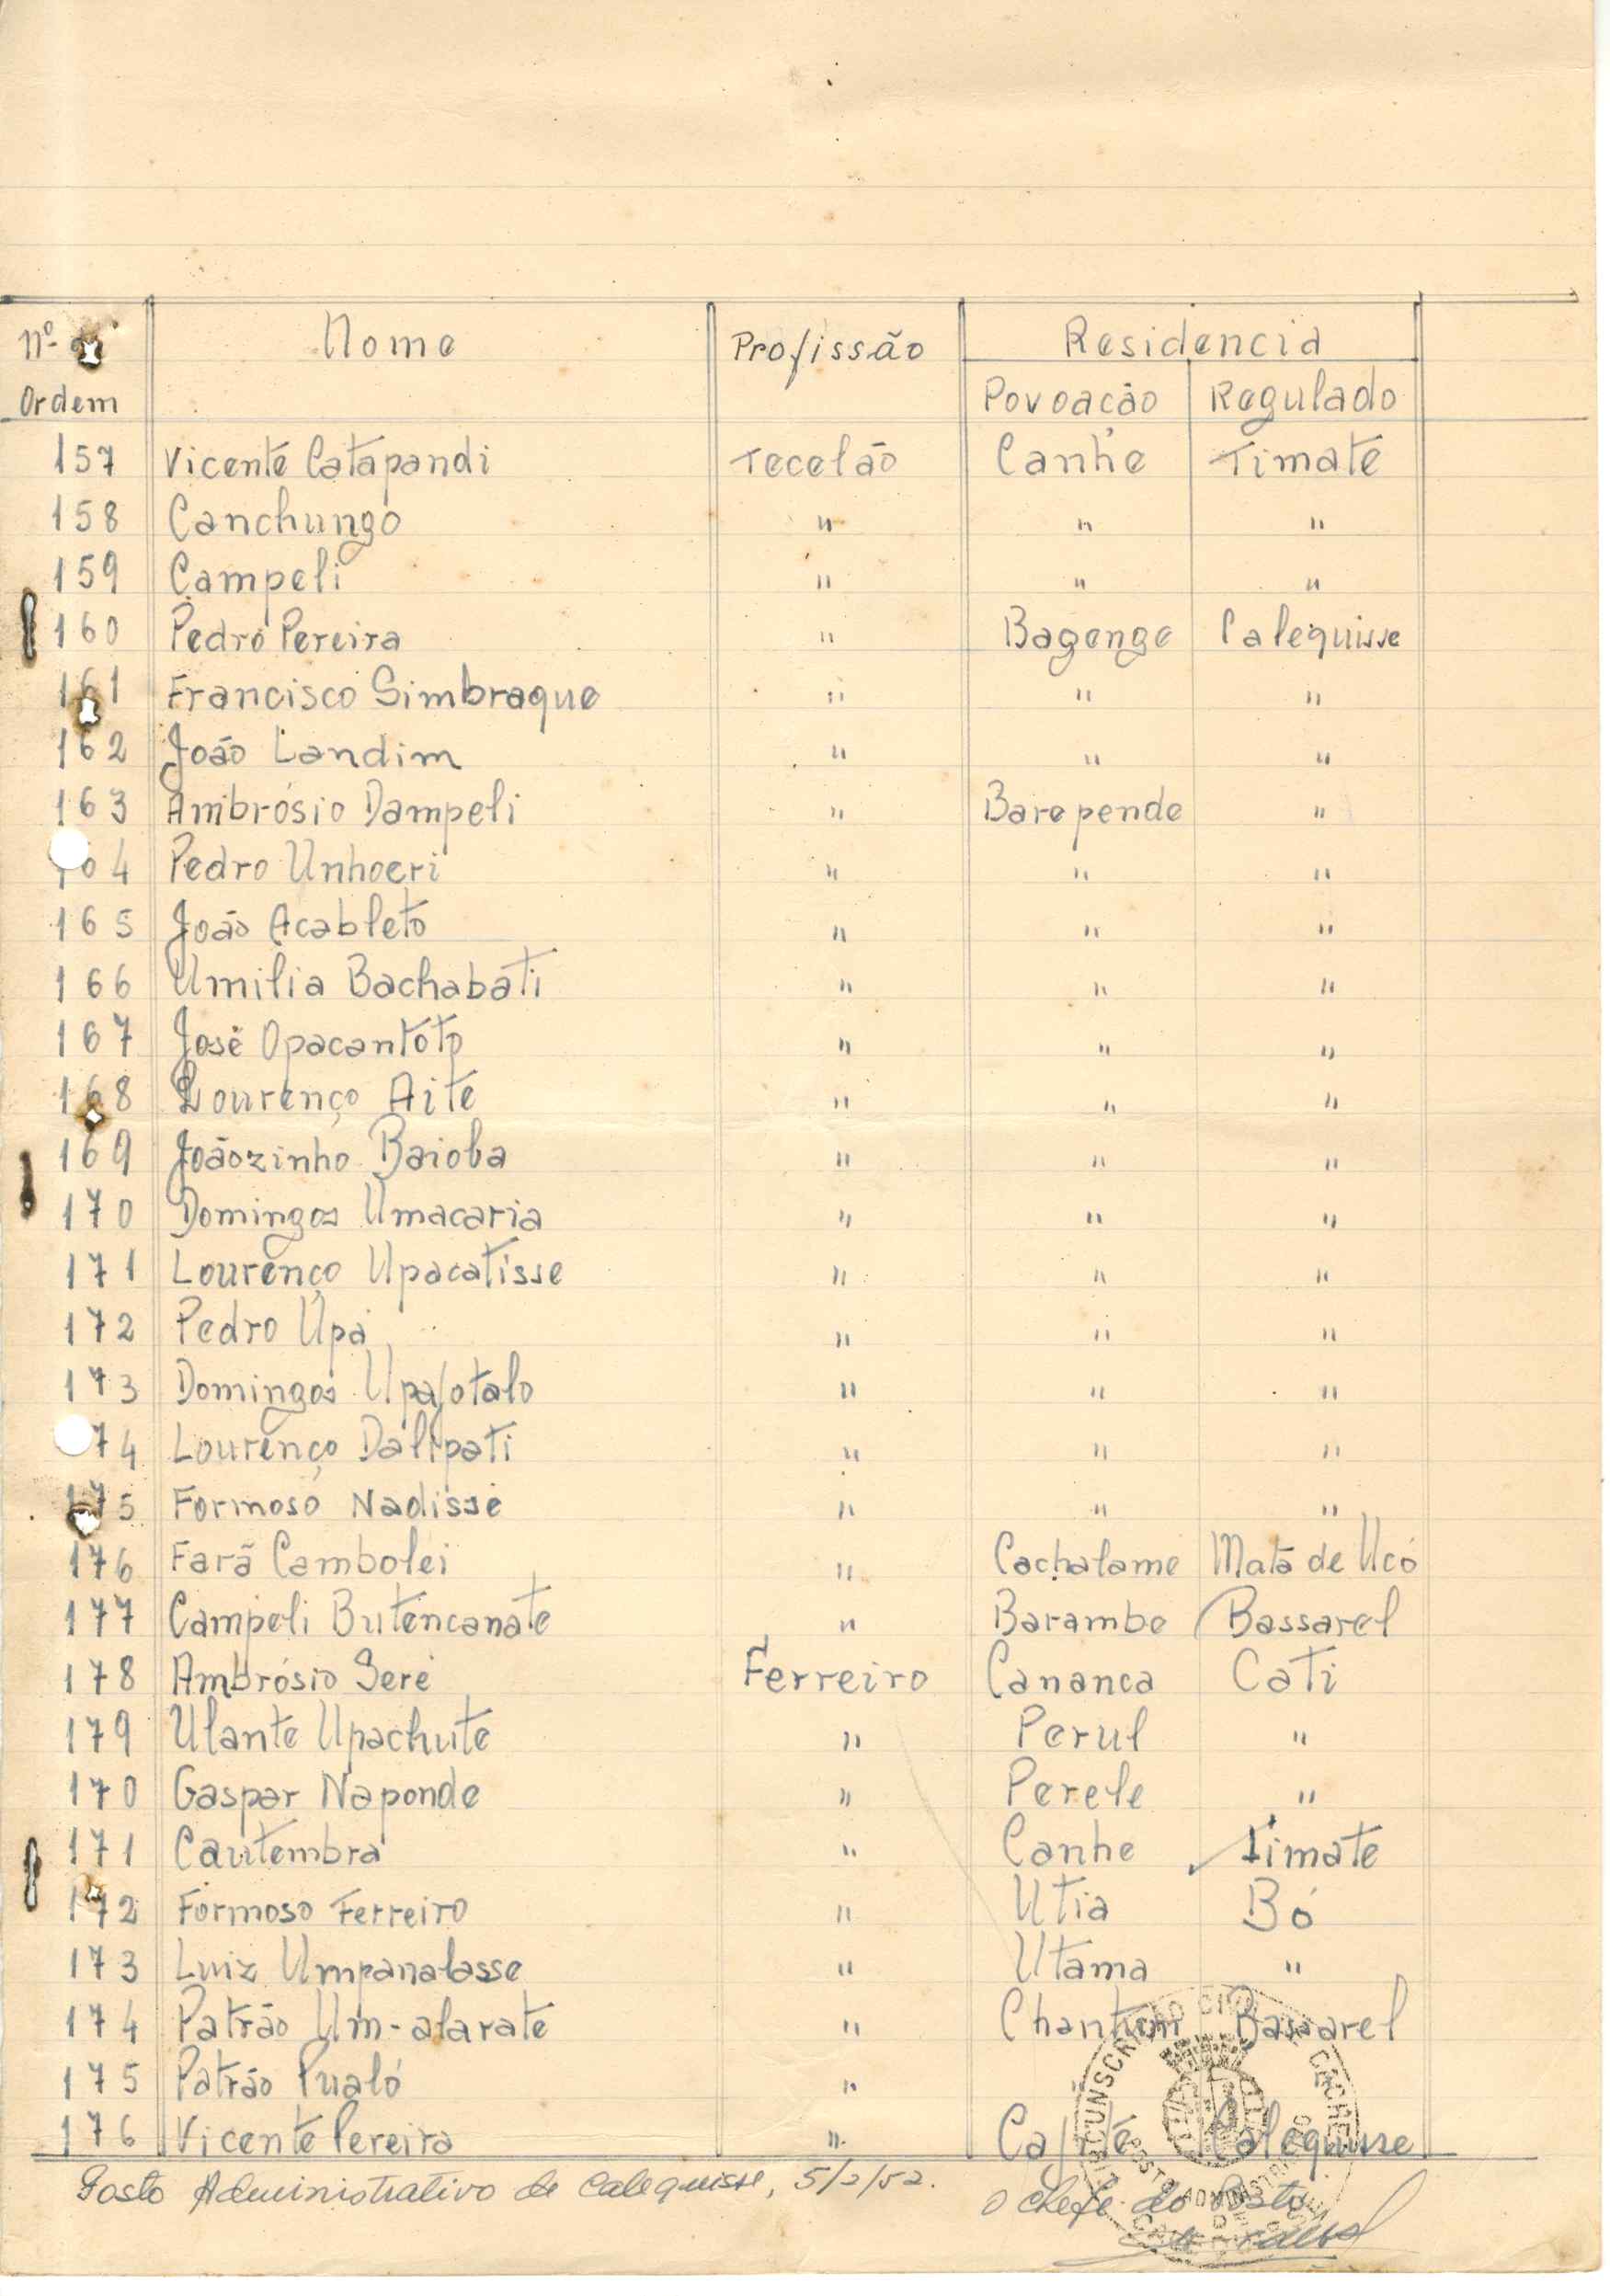 Nº de Nome Profissão Residencia
Ordem Povoação Regulado
157 Vicente Catapandi Tecelão Canhe Timate
158 Canchungo " " "
159 Campeli " " "
160 Pedro Pereira " Bagenge Calequisse
161 Francisco Simbraque " " "
162 João Landim " " "
163 Ambrósio Dampeli " Barepende "
164 Pedro Unhoeri " " "
165 João Acableto " " "
166 Umilia Bachabati " " "
167 José Opacantoto " " "
168 Lourenço Aite " " "
169 Joãozinho Baioba " " "
170 Domingos Umacaria " " "
171 Lourenço Upacatisse " " "
172 Pedro Upa " " "
173 Domingos Upafotalo " " "
74 Lourenço Dalipati " " "
175 Formoso Nadisse " " "
176 Farã Cambolei " Cachalame Mata de Ucó
177 Campeli Butencanate " Barambe Bassarel
178 Ambrósio Seré Ferreiro Cananca Cati
179 Ulante Upachute " Perul "
170 Gaspar Naponde " Perele "
171 Cautembra " Canhe Timate
172 Formoso Ferreiro " Utia Bó
173 Luiz Umpanalasse " Utama "
174 Patrão Um-alarate " Bassarel
175 Patrão Pualó " " "
176 Vicente Pereira " Cajité Calequisse
Posto Administrativo de Calequisse, 5/2/52.
O Chefe do Posto,